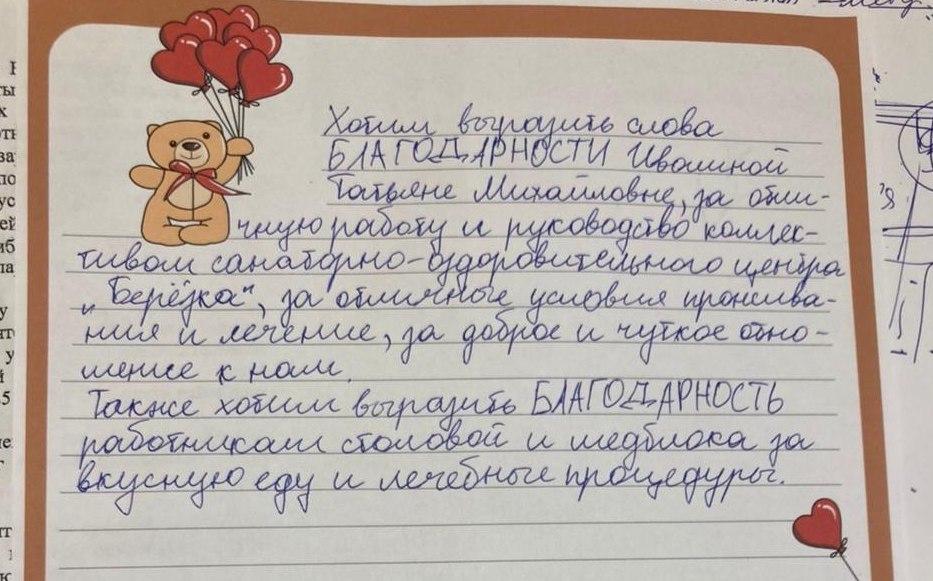 Хотим выразить слова
БЛАГОДАРНОСТИ Ивашиной
Татьяне Михайловне, за отли-
чную работу и руководство коллек-
тивом санаторно-оздоровительного центра
„Берёзка“, за отличные условия прожива-
ния и лечение, за доброе и чуткое отно-
шение к нам.
Также хотим выразить БЛАГОДАРНОСТЬ
работникам столовой и медблока за
вкусную еду и лечебные процедуры.